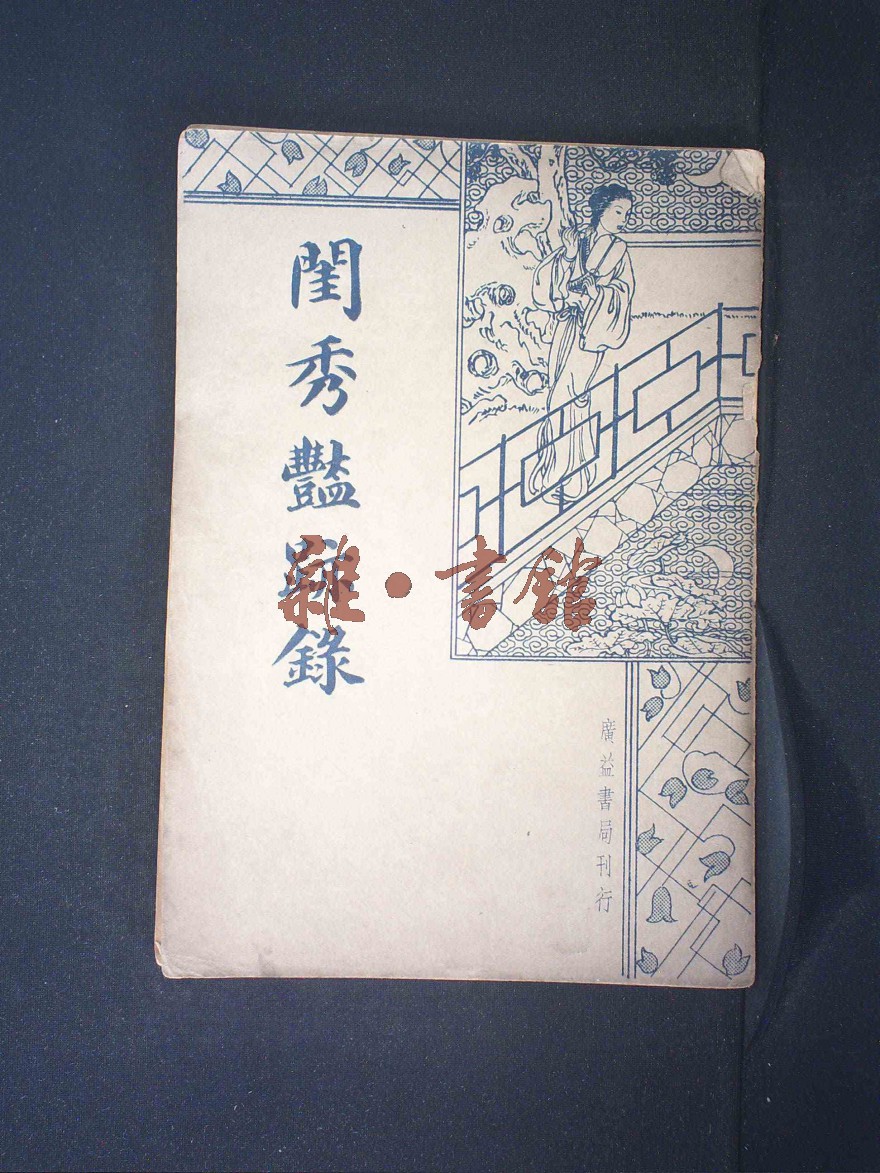 閨秀豔跡錄
雜·書館
廣益書局刊行